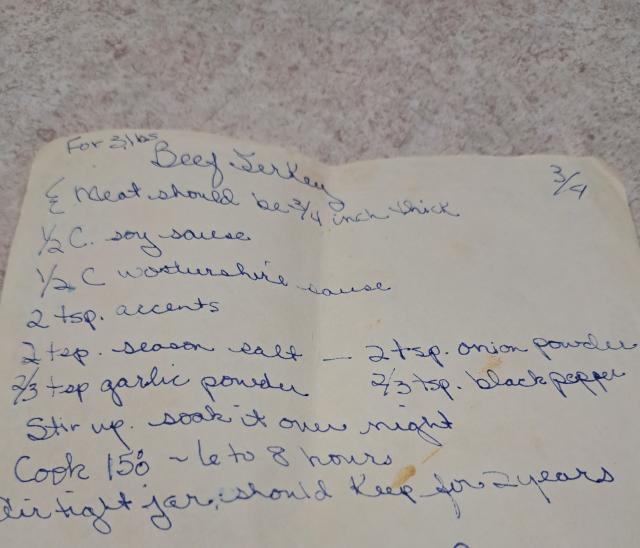 For 3 lbs
Beef Jerkey
3/4
Meat should be 3/4 inch thick
1/2 C. soy sause
1/2 C wosturshire sause
2 tsp. accents
2 tsp. season salt — 2 tsp. onion powder
2/3 tsp garlic powder 2/3 tsp. black pepper
Stir up. soak it over night
Cook 150 ~ 6 to 8 hours
Air tight jar, should keep for 2 years